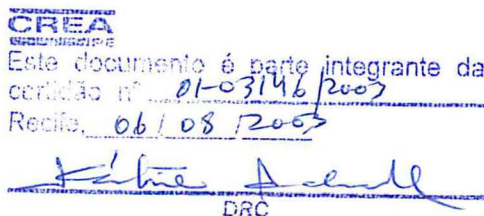 CREA
Este documento é parte integrante da
certidão nº 01-03146/2003
Recife, 06 / 08 / 2003
DRC